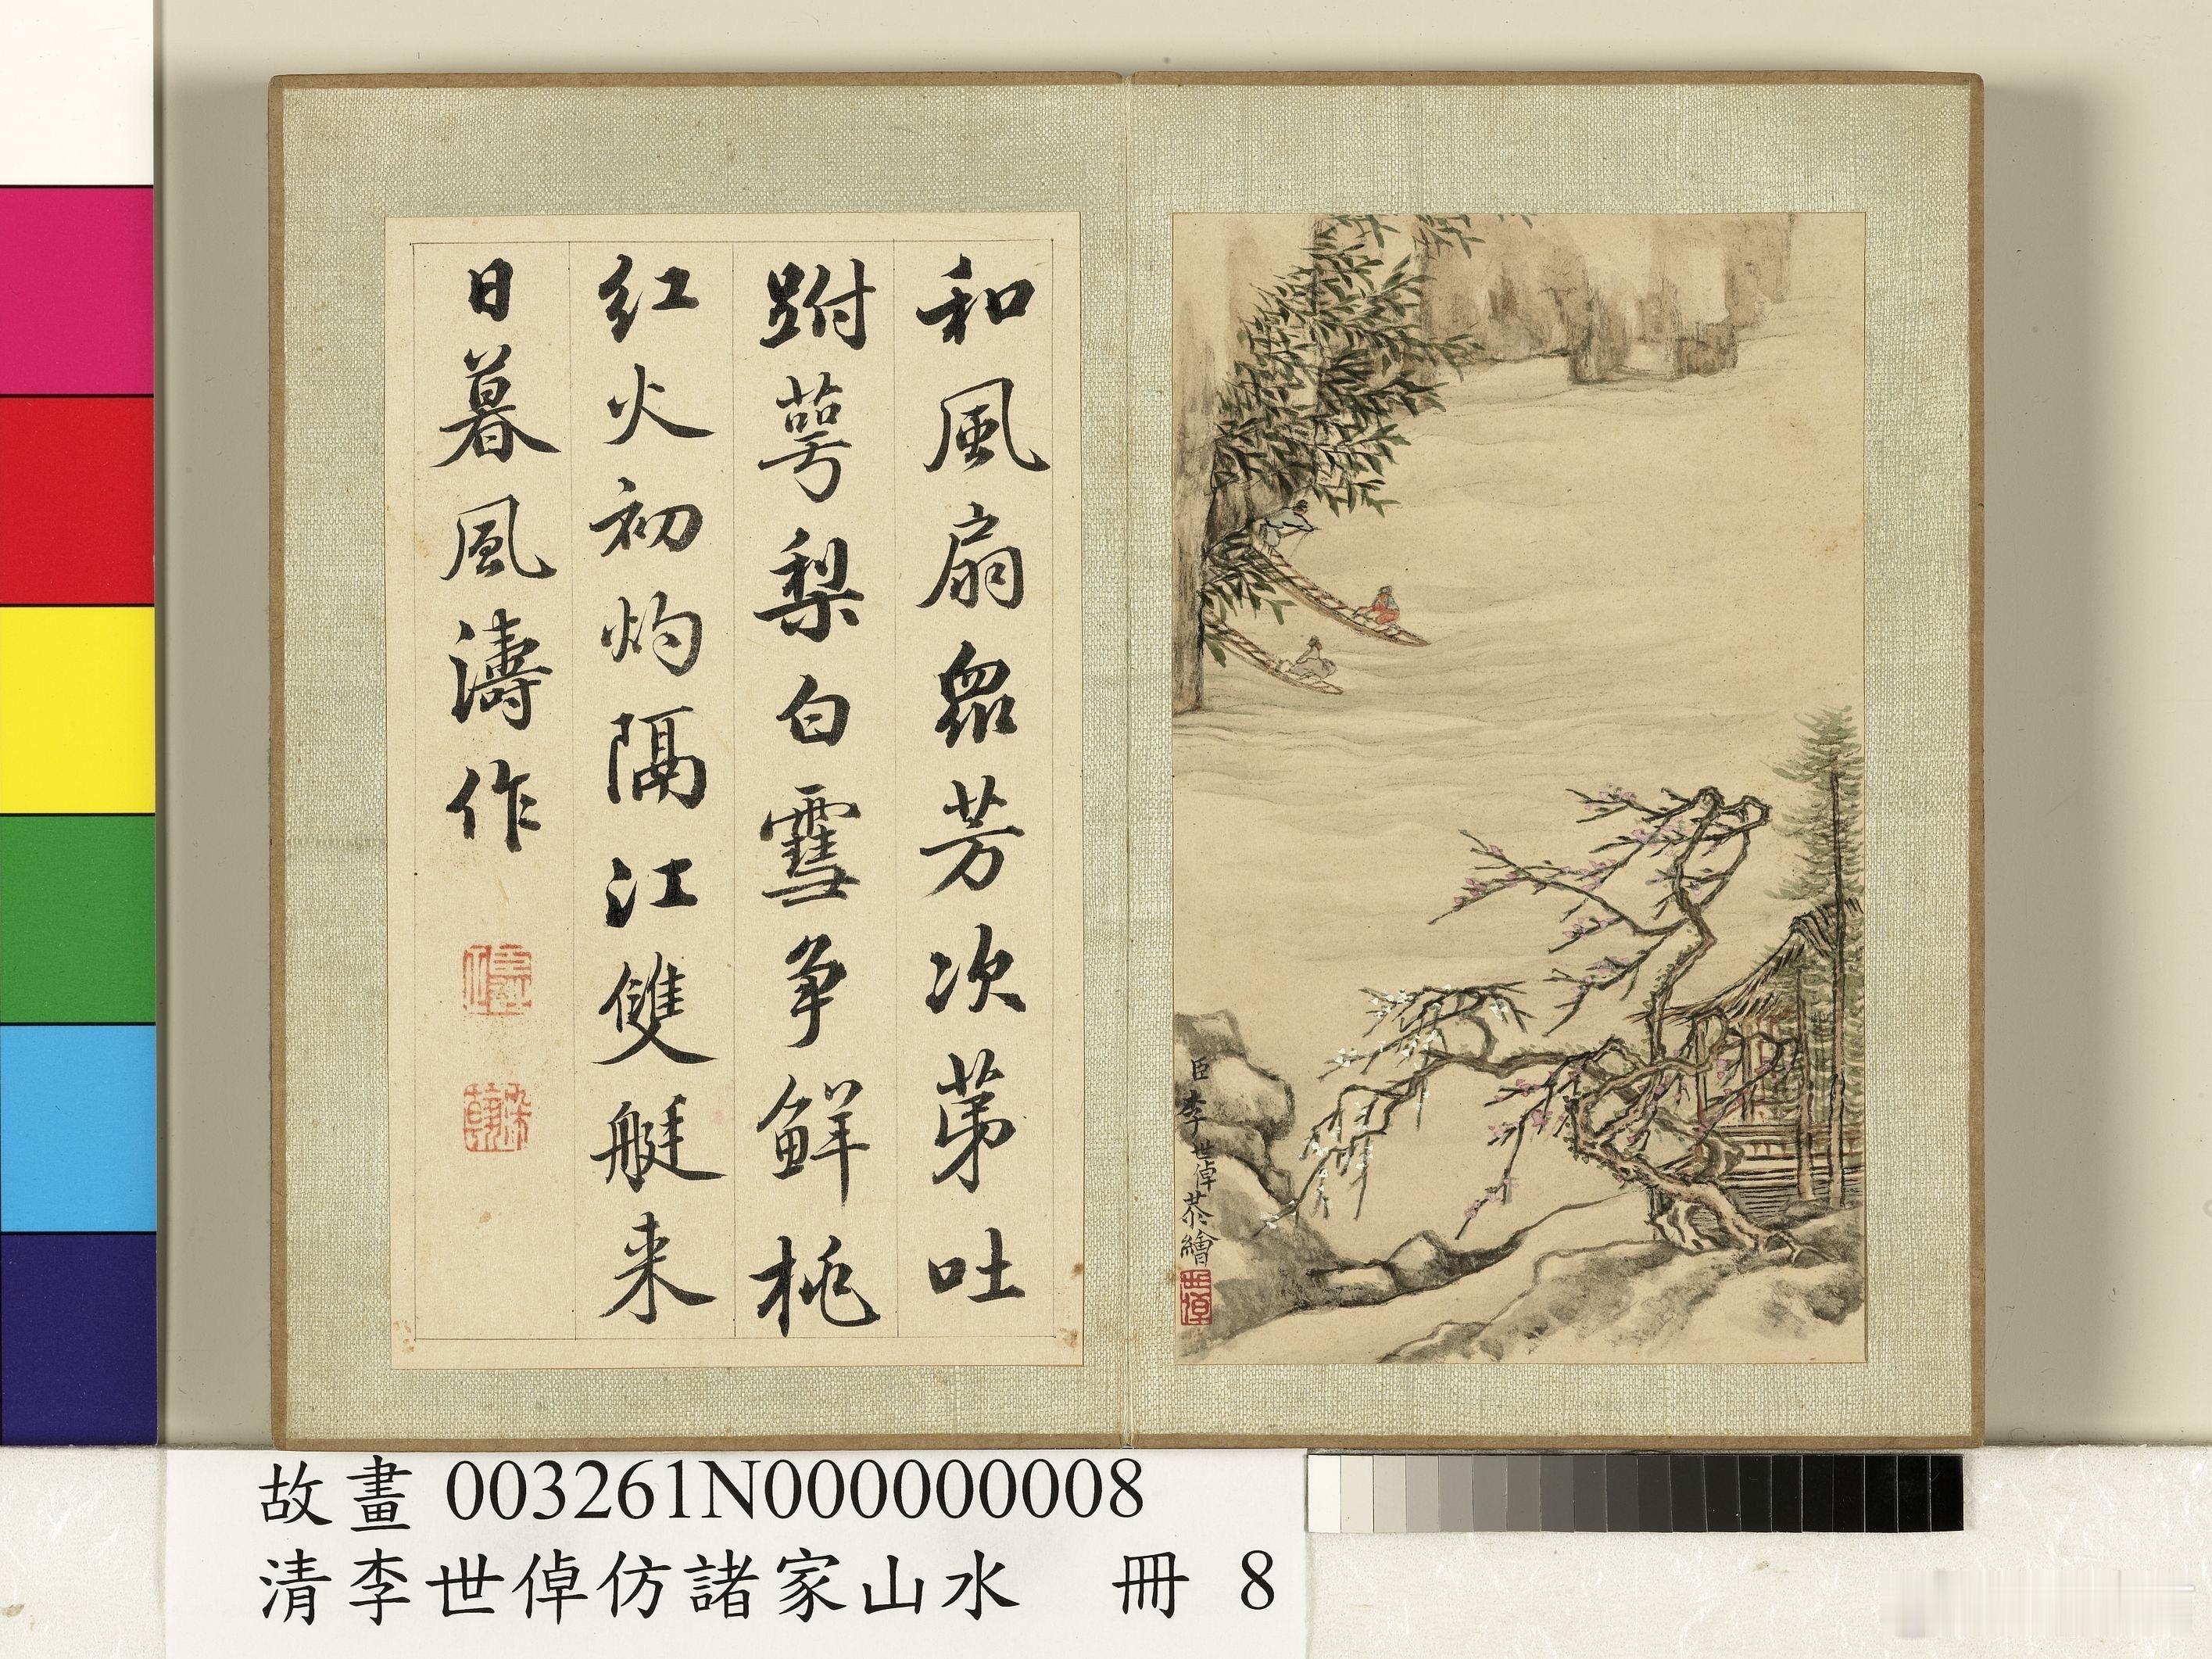 和風扇眾芳次苐吐
跗萼梨白雪争鮮桃
红火初灼隔江雙艇来
日暮風濤作
臣李世倬恭繪
世倬
故畫 003261N000000008
清李世倬仿諸家山水 冊 8